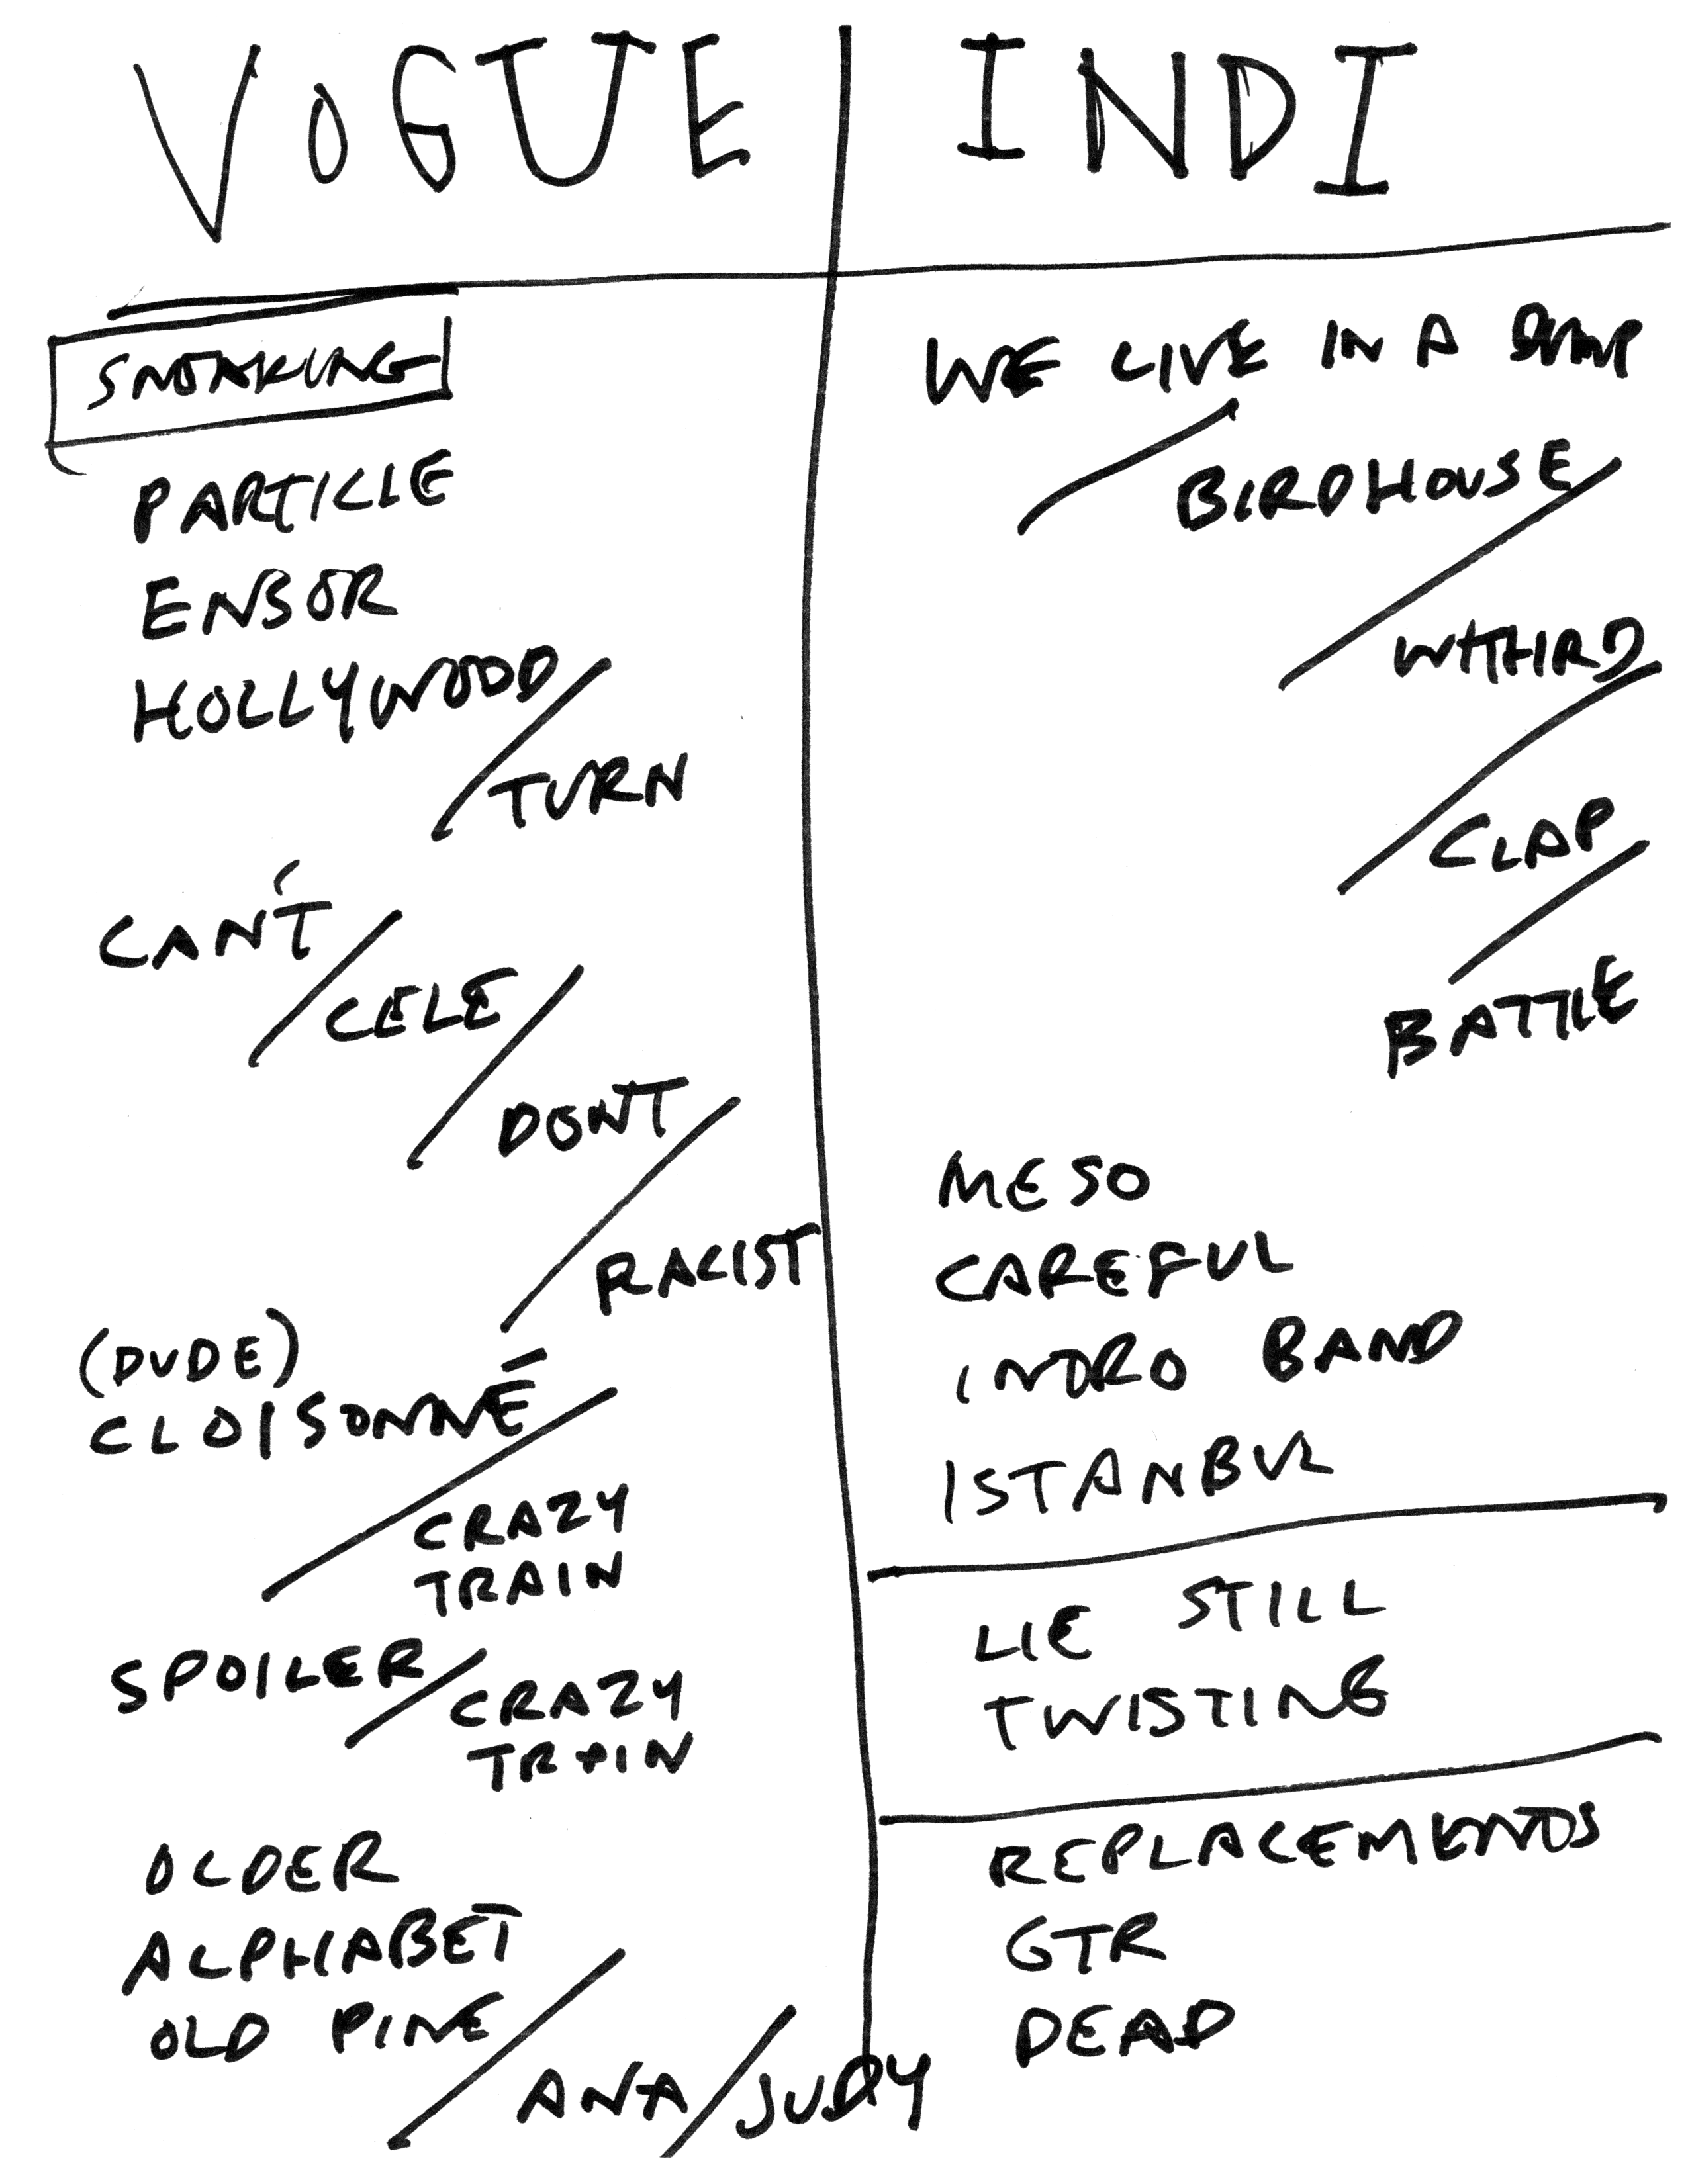 VOGUE
SNEAKING
PARTICLE
ENSOR
HOLLYWOOD/
TURN
CAN'T/
CELE/
DONT/
RACIST
(DUDE)
CLOISONNÉ/
CRAZY
TRAIN
SPOILER/
CRAZY
TRAIN
OLDER
ALPHABET
OLD PINE/
ANA/JUDY
INDI
WE LIVE IN A
/BIRDHOUSE
/
/
CLAP
/
BATTLE
MESO
CAREFUL
INTRO BAND
ISTANBUL
LIE STILL
TWISTING
REPLACEMENTS
GTR
DEAD